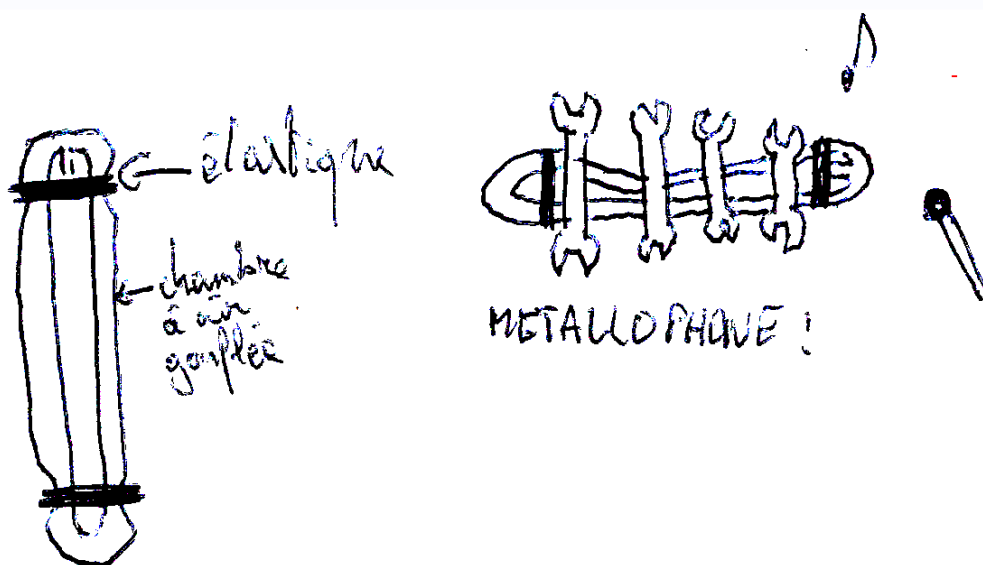 élastique
chambre
à air
gonflée
METALLOPHONE !